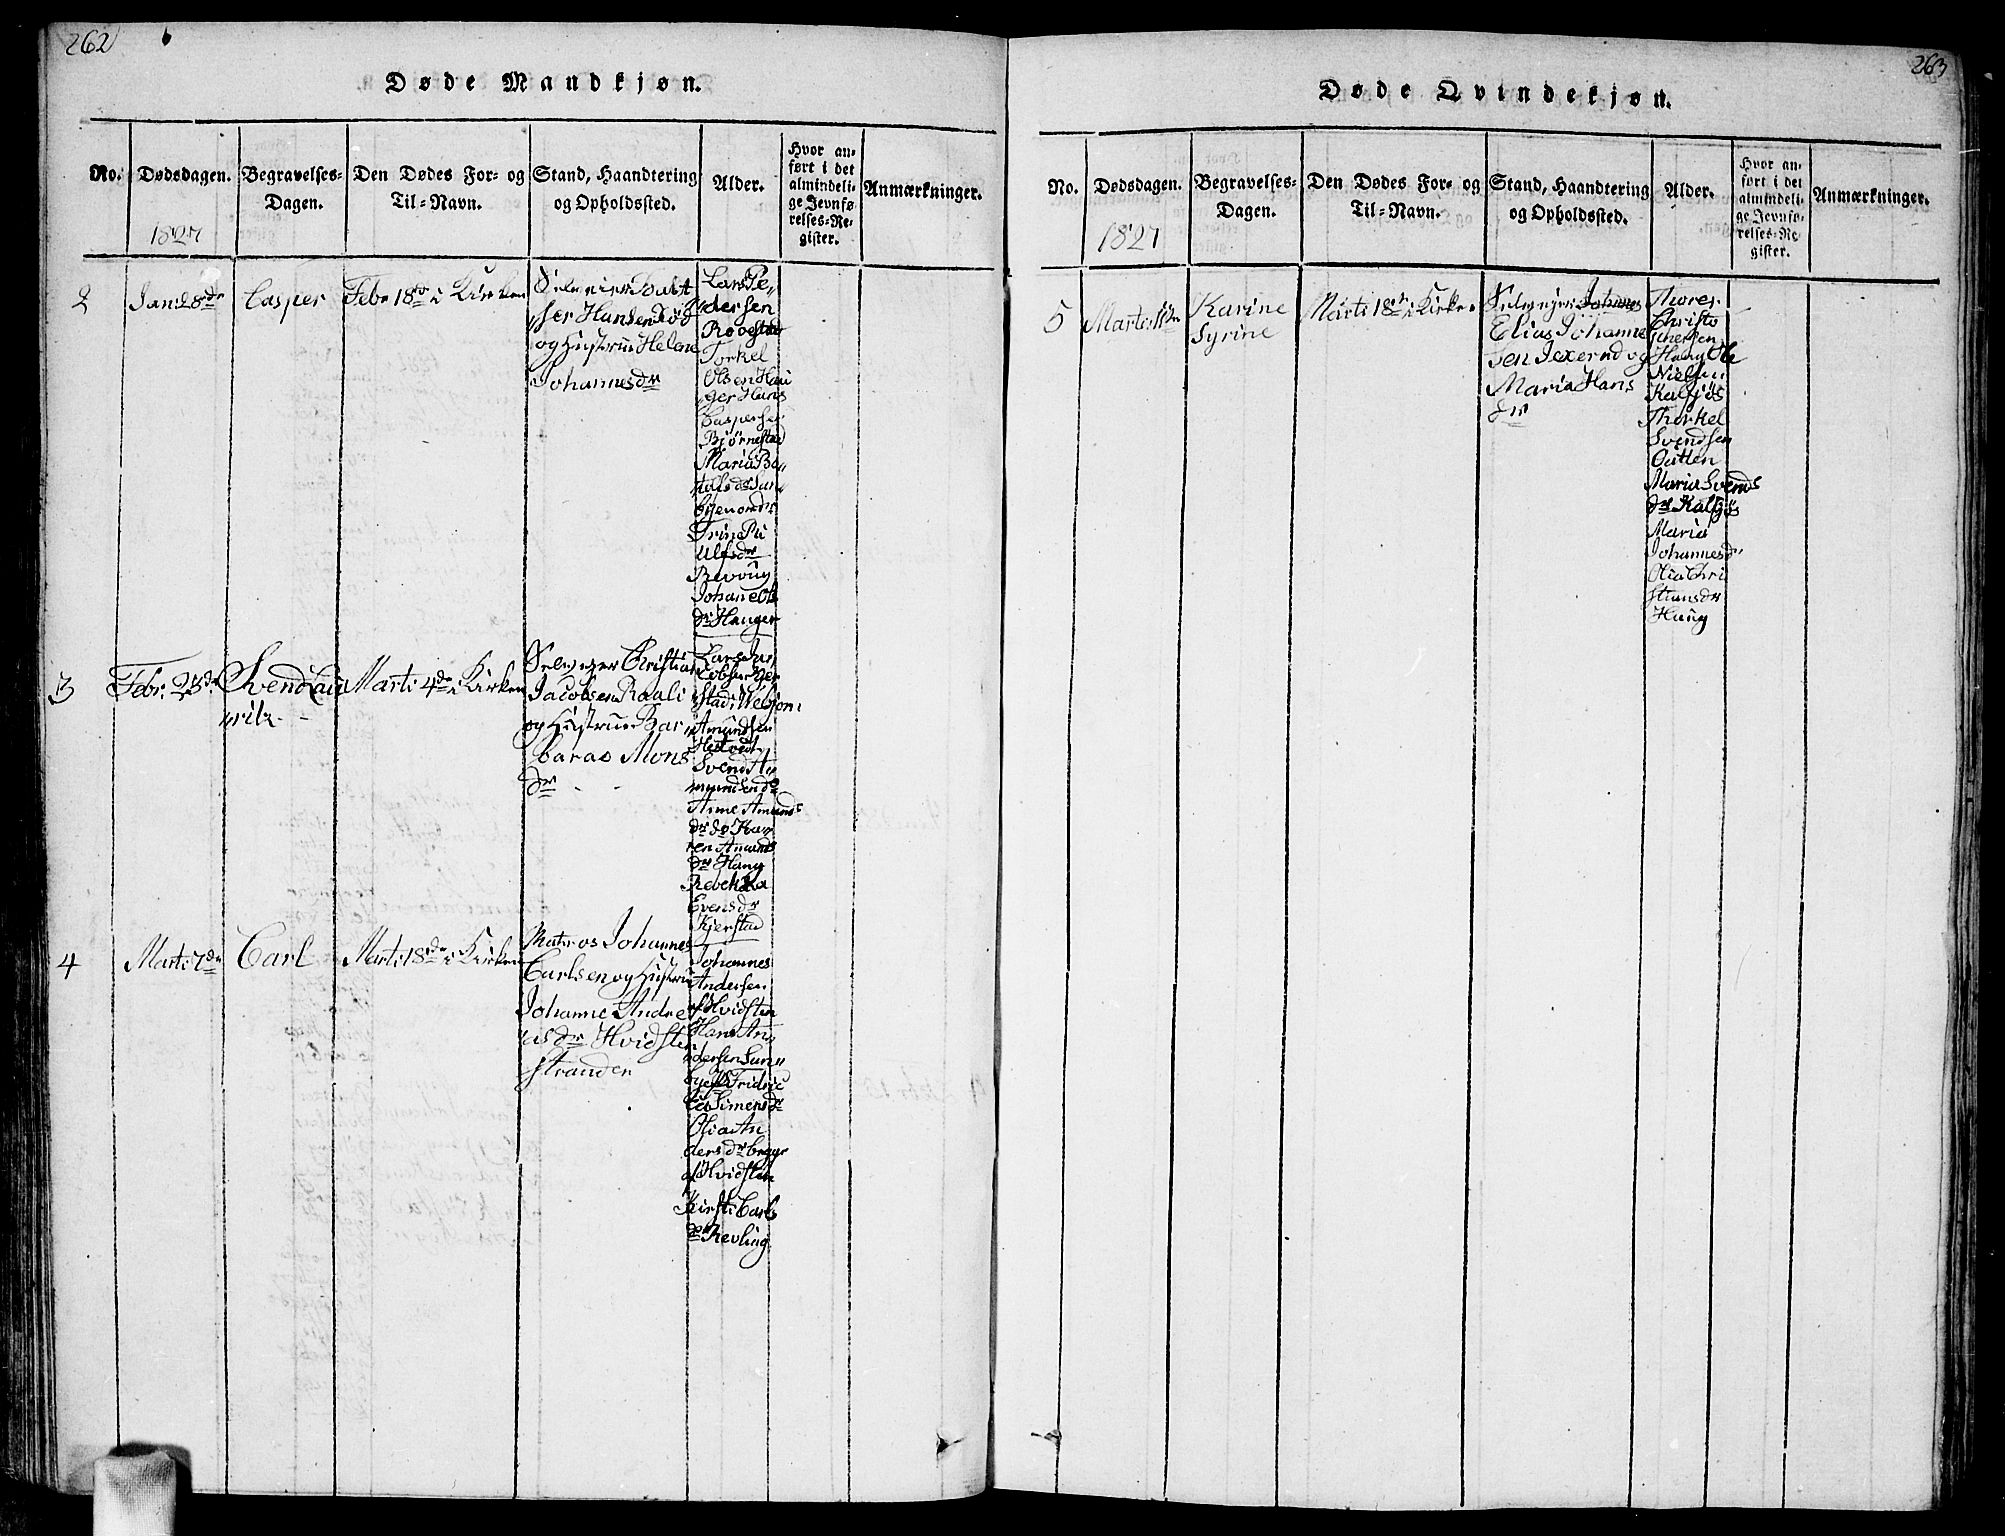 262
Døde Mandkjøn.
No.
Dødsdagen.
1827
Begravelses-
Dagen.
Den Dødes For- og
Til-Navn.
Stand, Haandtering
og Opholdssted.
Alder.
Hvor an-
ført i det
almindeli-
ge Jevnfø-
relses-Re-
gister.
Anmærkninger.
2
Jan: 28de
Casper
Febr 18de i Kirken
Selveier
ser Hansen
og Hustrue Helene
Johannesdr
Lars Pe-
dersen
Røvestad
Torkel
Olsen Hau
ger Hans
Caspersen
Bjørnestad
Maria Be-
Trine Pu
ulfsdr
Revoug
Johane Ols
dr Hauger
3
Febr. 23de
Svend Lau
ritz
Marti 4de i Kirken
Selveger Christian
Jacobsen Raali
og Hustrue Bar
baras Mons
dr
Lars Ja
cobsen Kjer
stad
Amundsen
Hestvedt
Svend A
mundsen do
Anne Amunds
dr do Kar
en Amunds
dr Haug
Rebekka
Evensdr
Kjerstad
4
Marti 7de
Carl
Marti 18de i Kirken
Matros Johannes
Carlsen og Hustru
Johanne Andre
asdr Hvidsten
stranden
Johannes
Andersen
Hvidsten
Hans An
dersen Sun
bye Fridric
ca Simensdr
Olia An
dersdr begge
af Hvidsten
Kirsti Carls
dr Revling
263
Døde Qvindekjøn.
No.
Dødsdagen.
1827
Begravelses-
Dagen.
Den Dødes For- og
Til-Navn.
Stand, Haandtering
og Opholdssted.
Alder.
Hvor an-
ført i det
almindeli-
ge Jevnfø-
relses-Re-
gister.
Anmærkninger.
5
Marti: 11de
Karine
Syrine
Marti 18de i Kirken
Selveyer Johannes
Elias Johanne
sen Jexernd og
Maria Hans
dr
Thores
Christo
phersen
Haug Ole
Nielsen
Kalsjøs
Thorkel
Svendsen
Outten
Maria Svends
dr Kalsjøs
Maria
Johannesdr
Olia Chri
stiansdr
Haug